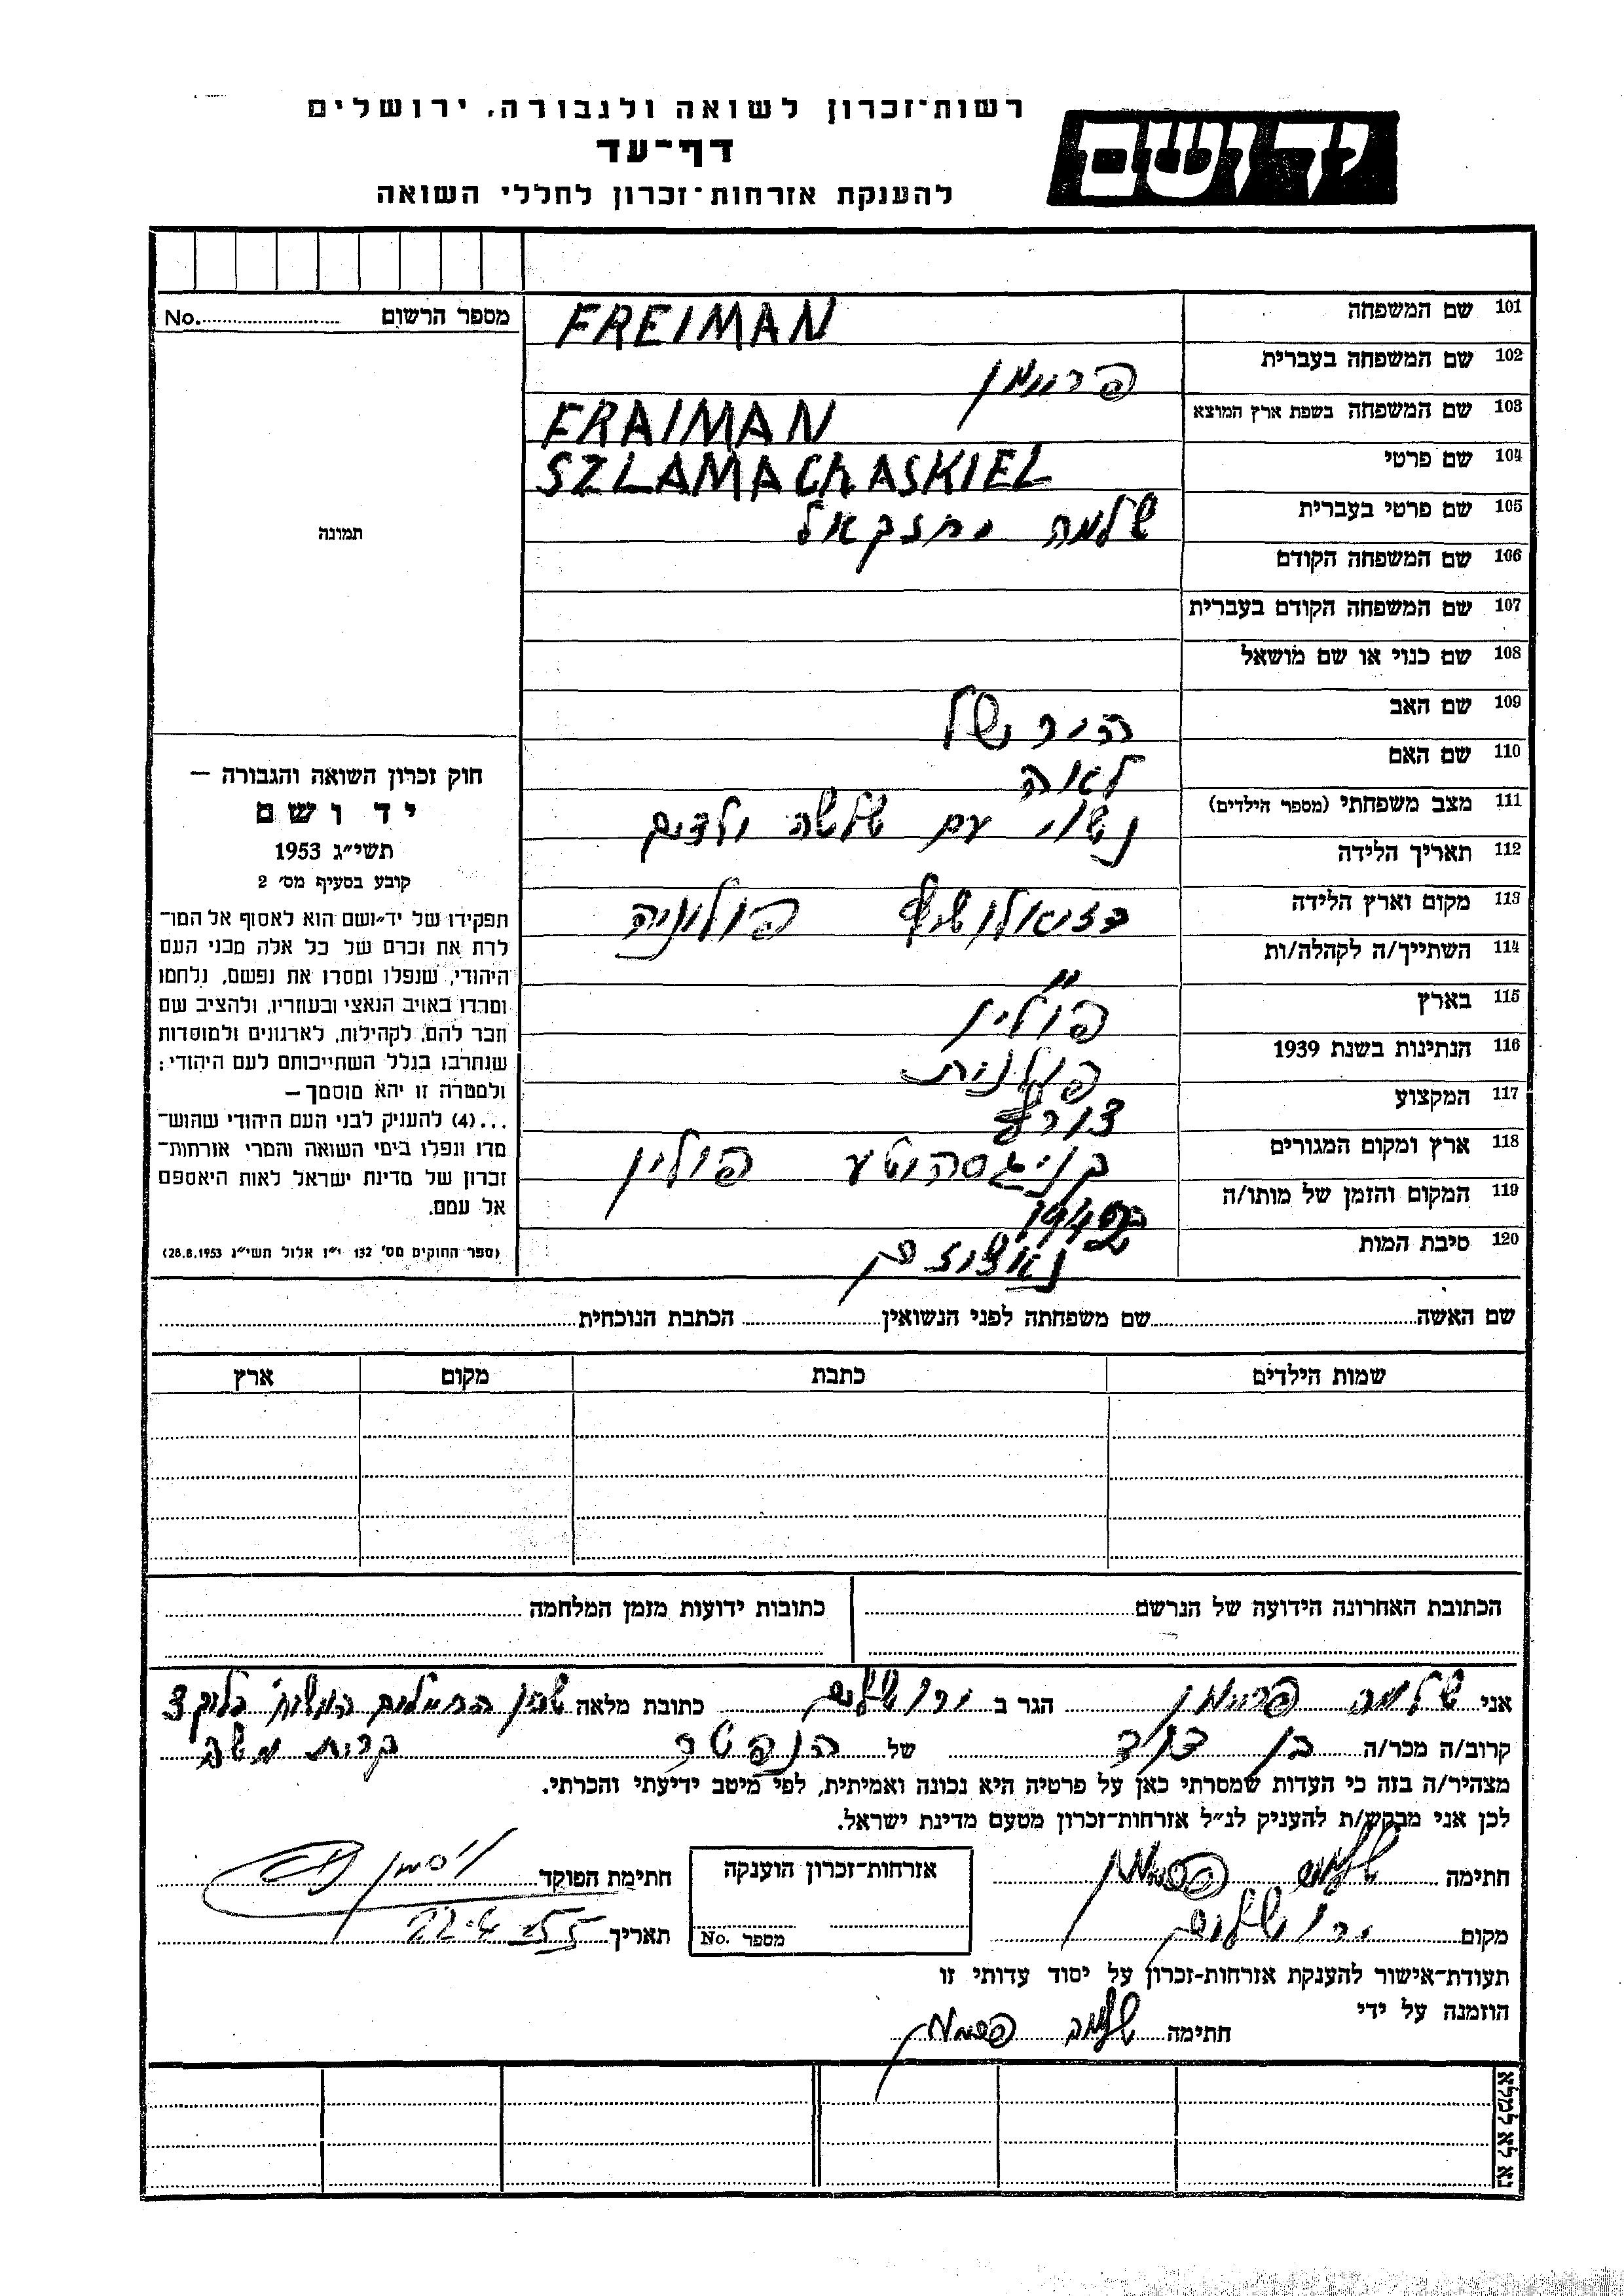 רשות־זכרון לשואה ולגבורה, ירושלים
דף־עד
להענקת אזרחות־זכרון לחללי השואה
יד ושם
מספר הרשום No.
תמונה
חוק זכרון השואה והגבורה —
יד ושם
תשי״ג 1953
קובע בסעיף מס׳ 2
תפקידו של יד־ושם הוא לאסוף אל המו־
לדת את זכרם של כל אלה מבני העם
היהודי, שנפלו ומסרו את נפשם, נלחמו
ומרדו באויב הנאצי ובעוזריו, ולהציב שם
וזכר להם, לקהילות, לארגונים ולמוסדות
שנחרבו בגלל השתייכותם לעם היהודי;
ולמטרה זו יהא מוסמך—
...(4) להעניק לבני העם היהודי שהוש־
מדו ונפלו בימי השואה והמרי אזרחות־
זכרון של מדינת ישראל לאות היאספם
אל עמם.
(ספר החוקים מס׳ 132 י״ז אלול תשי״ג 28.8.1953)
101 שם המשפחה FREIMAN
102 שם המשפחה בעברית פריימן
103 שם המשפחה בשפת ארץ המוצא FRAIMAN
104 שם פרטי SZLAMA CHASKIEL
105 שם פרטי בעברית שלמה יחזקאל
106 שם המשפחה הקודם
107 שם המשפחה הקודם בעברית
108 שם כנוי או שם מושאל
109 שם האב הירשל
110 שם האם לאה
111 מצב משפחתי (מספר הילדים) נשוי עם שלשה ילדים
112 תאריך הלידה
113 מקום וארץ הלידה פולוניה
114 השתייך/ה לקהלה/ות "
115 בארץ פולין
116 הנתינות בשנת 1939 פולנית
117 המקצוע צורף
118 ארץ ומקום המגורים קניגסהוטע פולין
119 המקום והזמן של מותו/ה 1942
120 סיבת המות
שם האשה שם משפחתה לפני הנשואין הכתבת הנוכחית
שמות הילדים כתבת מקום ארץ
הכתובת האחרונה הידועה של הנרשם כתובות ידועות מזמן המלחמה
אני שלמה פריימן הגר ב ירושלים כתובת מלאה שכון החיילים בלוק 3
קרוב/ה מכר/ה בן דוד של הנפטר קרית משה
מצהיר/ה בזה כי העדות שמסרתי כאן על פרטיה היא נכונה ואמיתית, לפי מיטב ידיעתי והכרתי.
לכן אני מבקש/ת להעניק לנ״ל אזרחות־זכרון מטעם מדינת ישראל.
חתימה שלמה פריימן אזרחות־זכרון הוענקה חתימת הפוקד
מקום ירושלים מספר No. תאריך 22.4.55
תעודת־אישור להענקת אזרחות־זכרון על יסוד עדותי זו
הוזמנה על ידי
חתימה שלמה פריימן
נא לא למלא